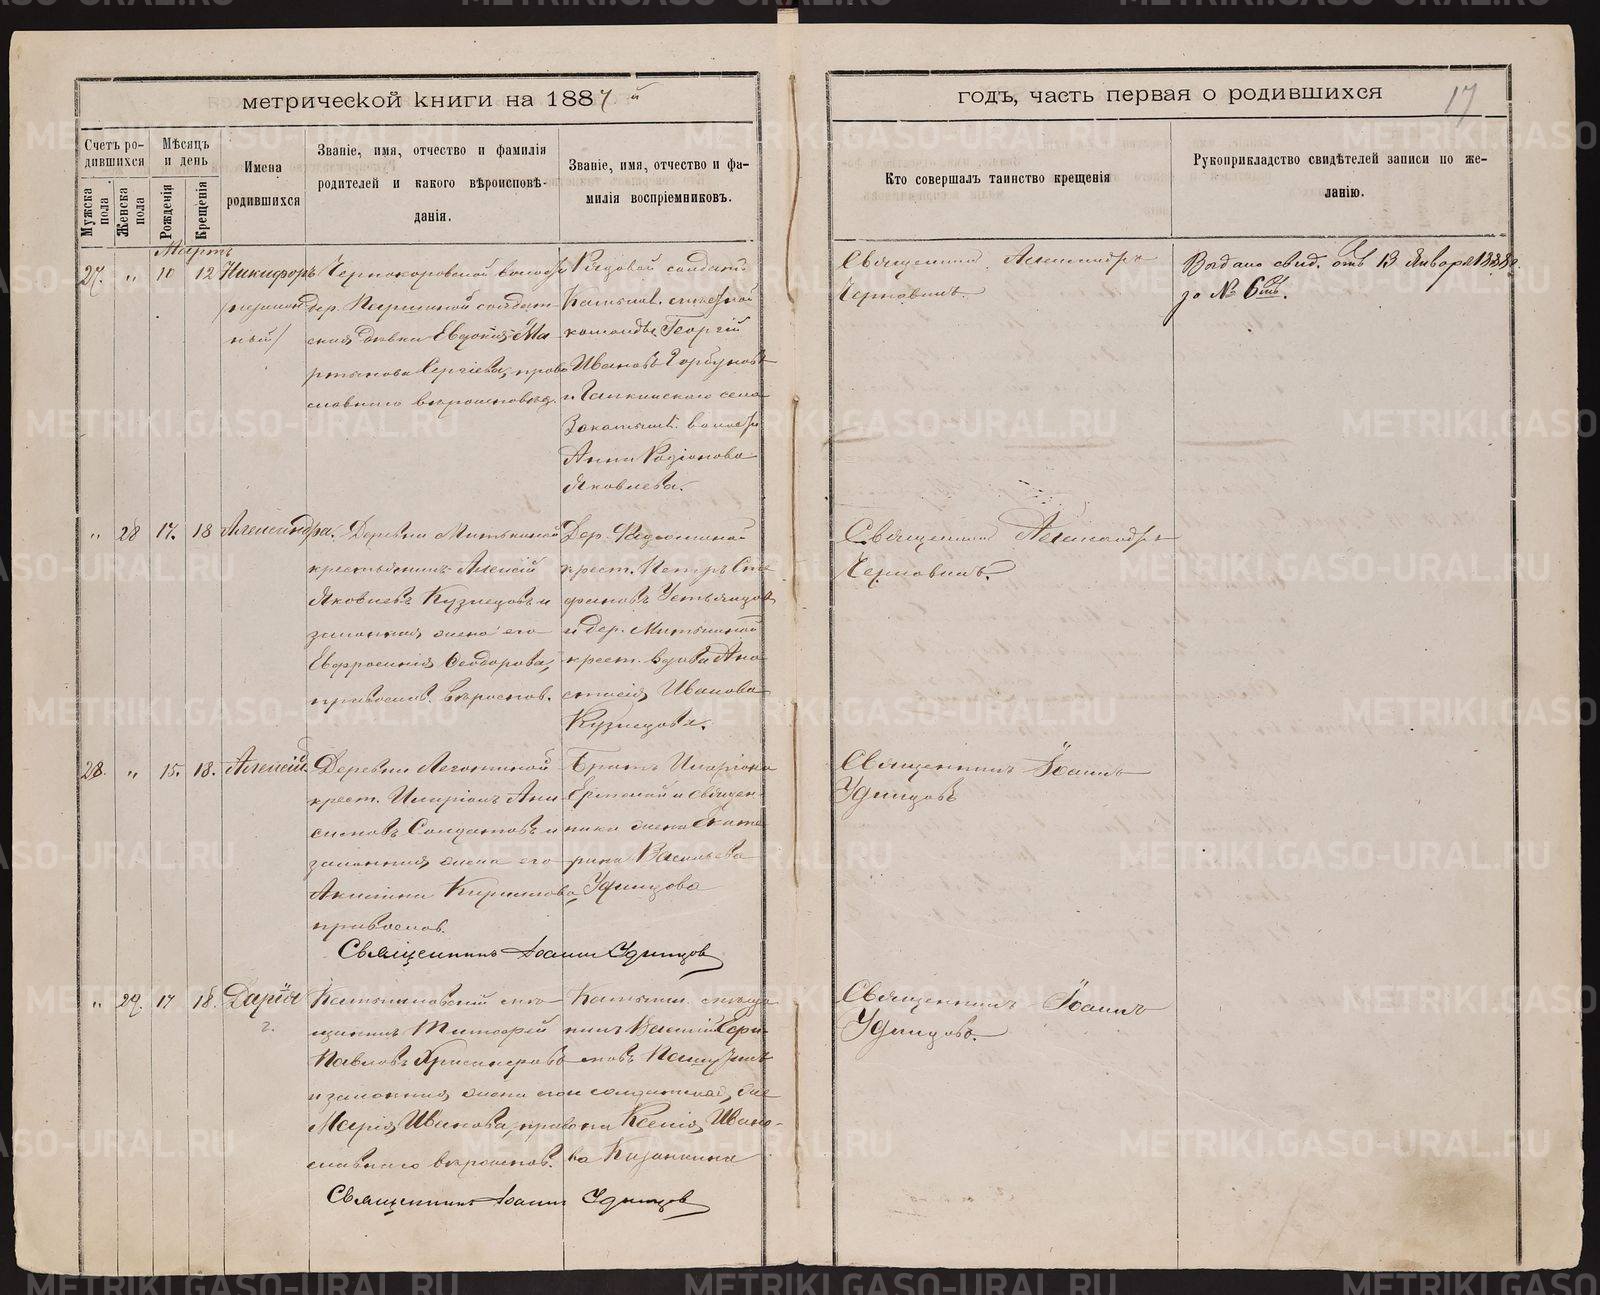 метрической книги на 1887 й
годъ, часть первая о родившихся
17
Счетъ ро-
дившихся
Мѣсяцъ
и день
Имена
родившихся
Званіе, имя, отчество и фамилія
родителей и какого вѣроисповѣ-
данія.
Званіе, имя, отчество и фа-
милія воспріемниковъ.
Кто совершалъ таинство крещенія
Рукоприкладство свидѣтелей записи по же-
ланію.
Мужска
пола
Женска
пола
Рожденія
Крещенія
Мартъ
27. " 10 12 Никифоръ
Чернокоровской волости
дер. солдат-
ская дѣвка Евдокія Ма-
Сергіева, право-
славнаго вѣроисповѣд.
Рядовой солдатъ
Камышл.
команды Георгій
Ивановъ Горбуновъ
и Галкинскаго села
волости
Анна Родіонова
Яковлева.
Священник Александръ
Черновинъ.
Выдано свид. отъ 13 Января 1888 г.
за № 6мъ.
" 28 17. 18 Александра.
Деревни Митькиной
крестьянинъ Алексій
Яковлевъ Кузнецовъ и
законная жена его
Евфросинія Ѳеодорова,
православ. вѣроиспов.
Дер.
крест. Петръ Сте-
фановъ Устьянцовъ
и дер. Митькиной
крест. вдова Ана-
стасія Иванова
Кузнецова.
Священник Александръ
Черновинъ.
28. " 15. 18. Алексій.
Деревни
крест. Иларіонъ Ани-
симовъ Солдатовъ и
законная жена его
Акилина Кириллова
православ.
Братъ Иларіона
Ермолай и священ-
ника жена Екате-
рина Васильева
Удинцова
Священникъ Іоаннъ
Удинцовъ
Священникъ Іоаннъ Удинцов
" 29. 17 18. Дарія
Камышловскій мѣ-
щанинъ Тимофей
Павловъ
и законная жена его
Марія Иванова, право-
славнаго вѣроиспов.
Камышл. мѣща-
нинъ Василій Гера-
симовъ
и солдатская же-
на Ксенія Ивано-
ва Казанкина
Священникъ Іоаннъ
Удинцовъ.
Священникъ Іоаннъ Удинцов